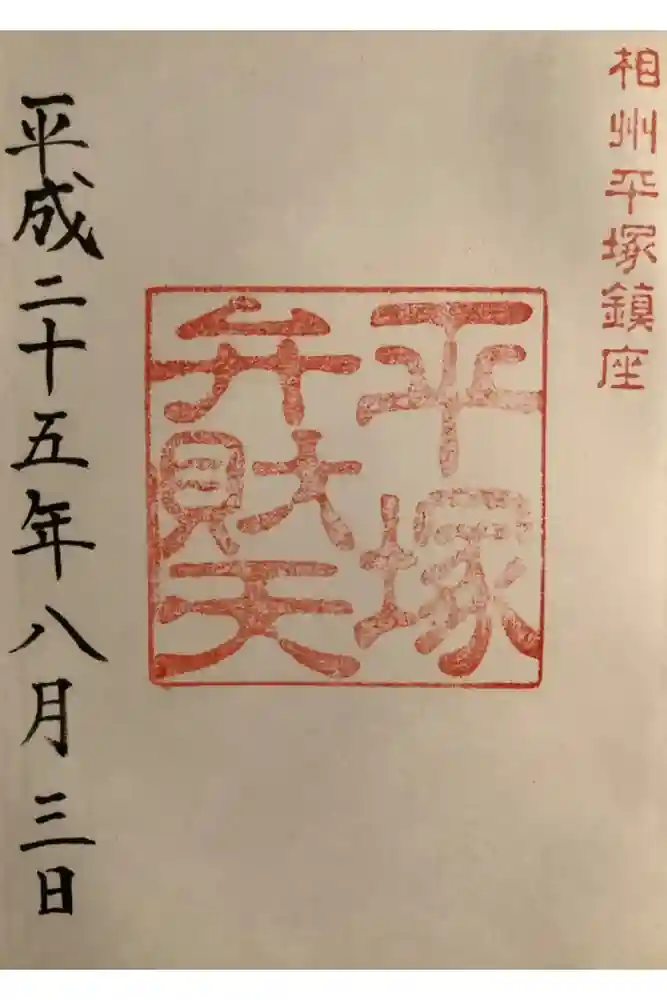 相州平塚鎮座
平塚
弁財天
平成二十五年八月三日